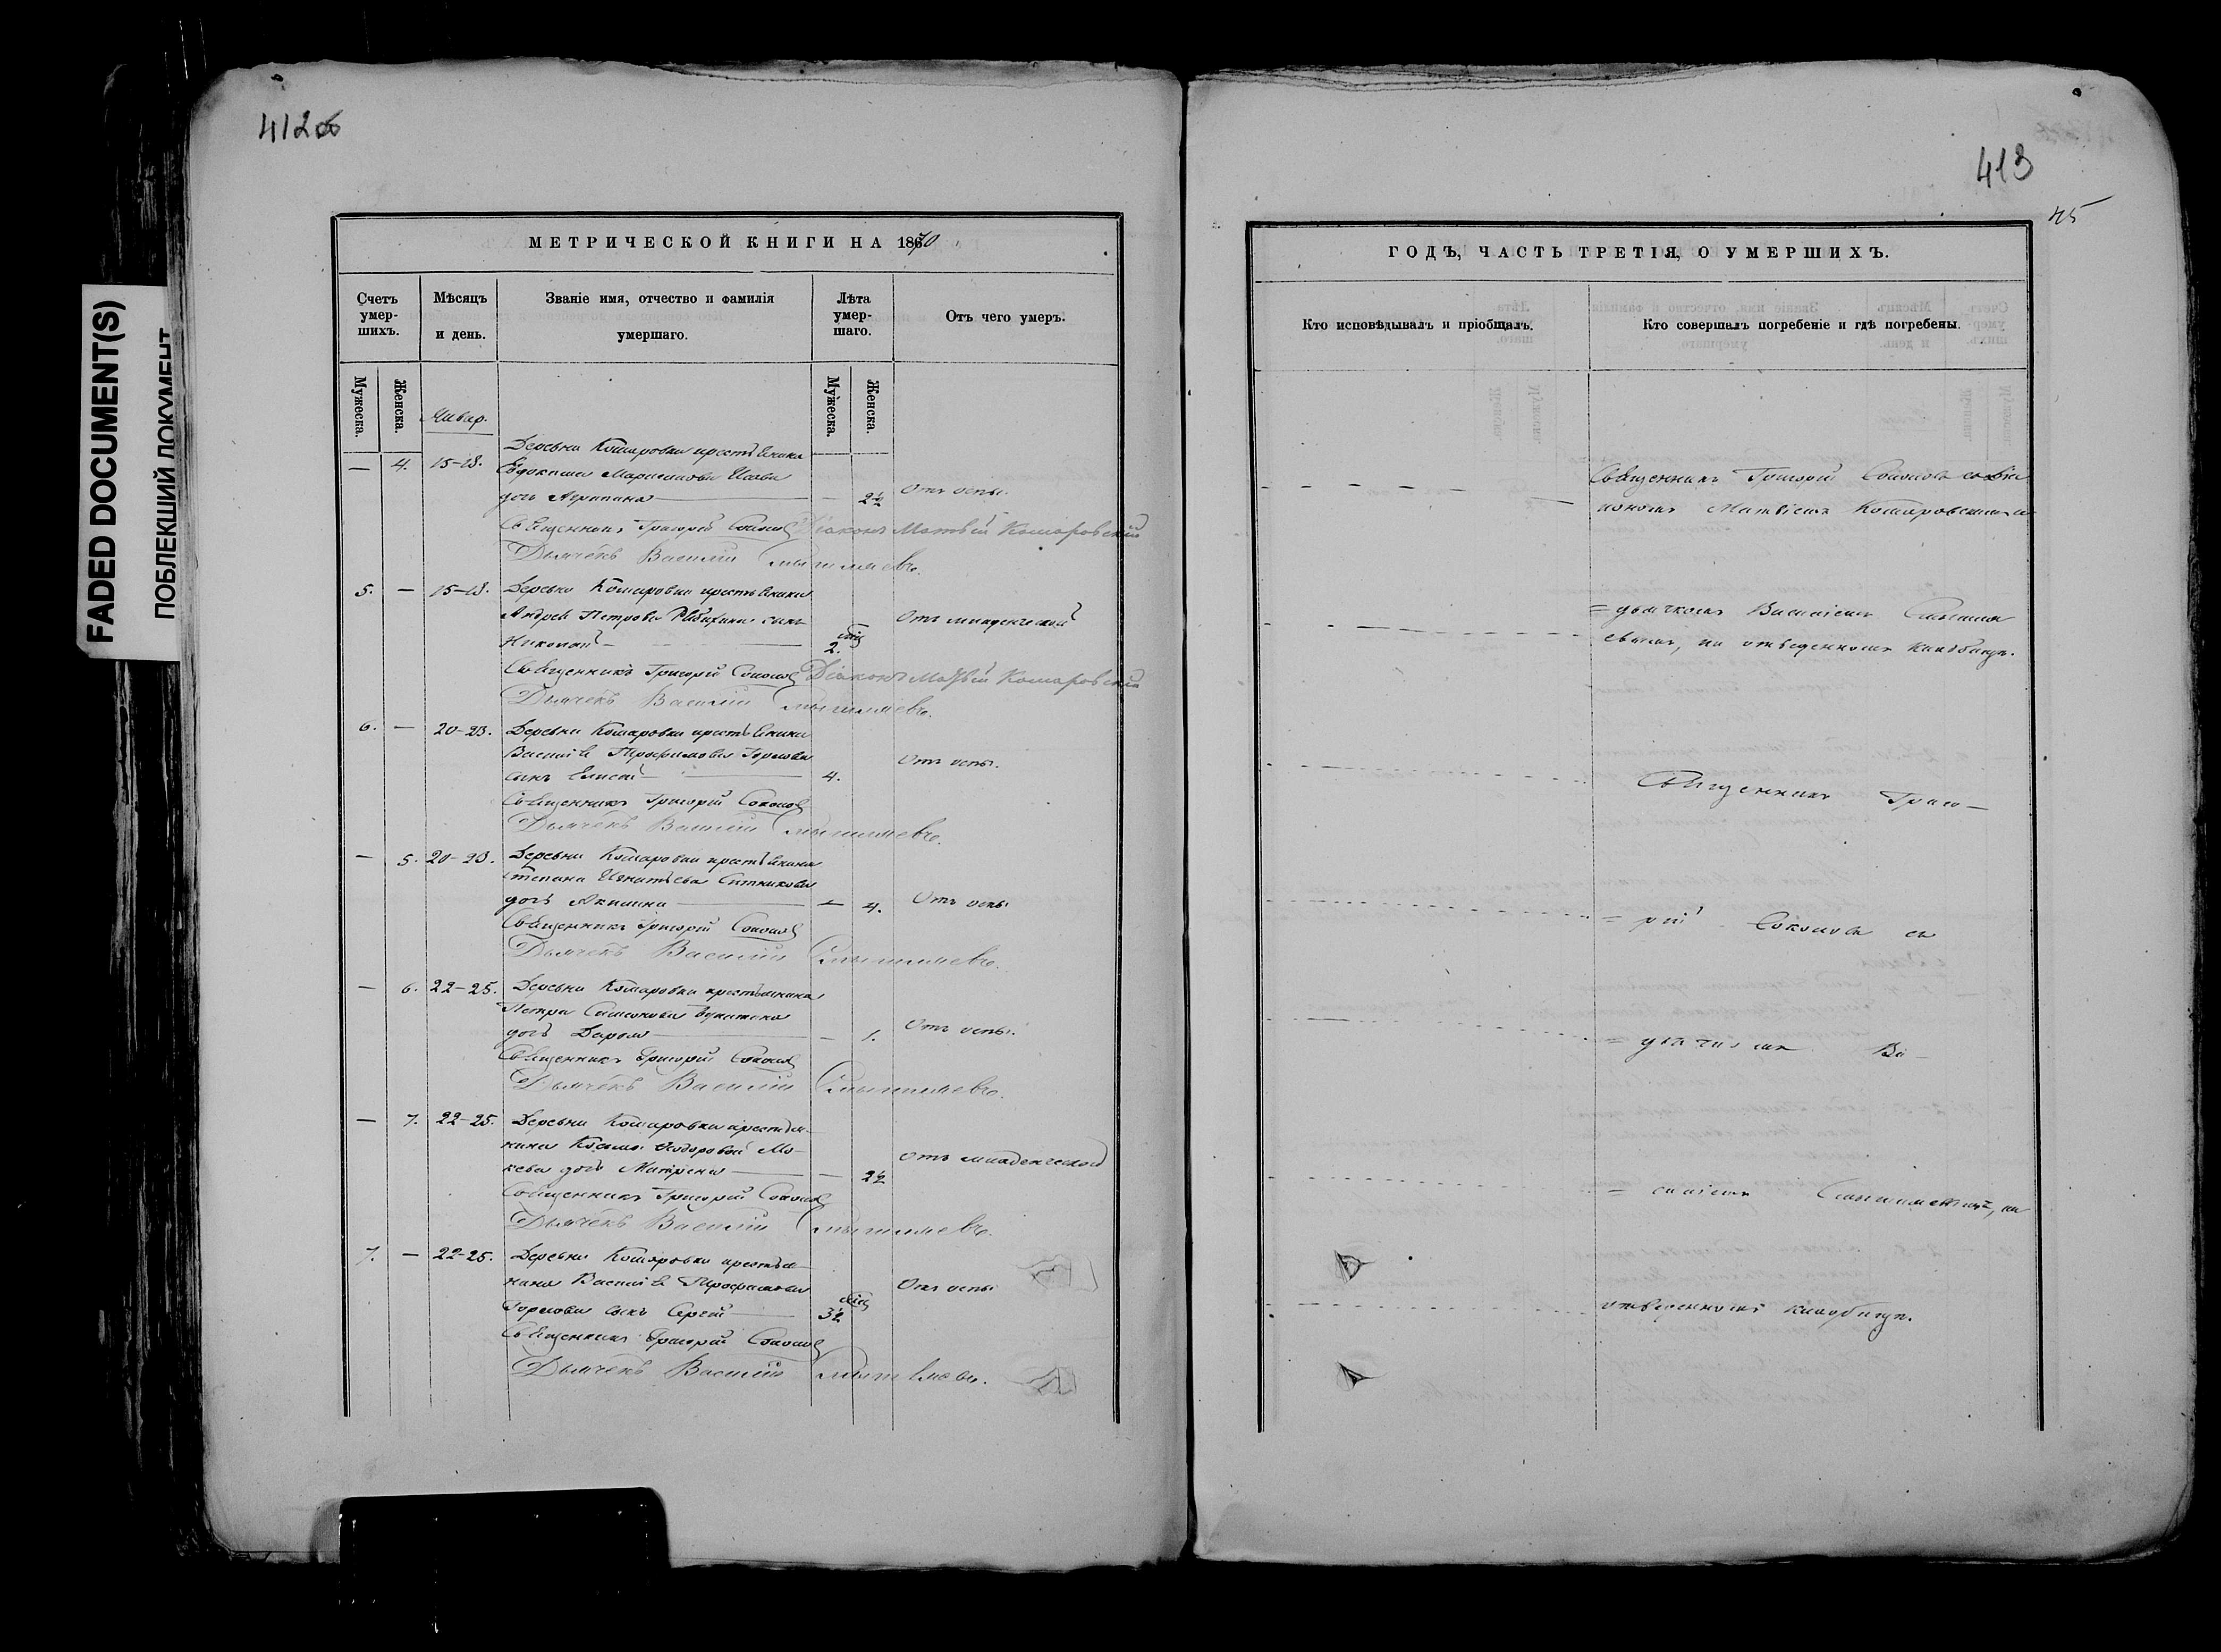 FADED DOCUMENT(S)
ПОБЛЕКШИЙ ДОКУМЕНТ
412об
МЕТРИЧЕСКОЙ КНИГИ НА 1870
Счетъ умер-шихъ.
Мѣсяцъ и день.
Званіе имя, отчество и фамилія умершаго.
Лѣта умер-шаго.
Отъ чего умеръ.
Мужеска.
Женска.
Мужеска.
Женска.
Январ.
Деревни Комаровки крестьянина
— 4. 15–18. Евдокима
дочь Агрипина — 2½ Отъ оспы.
Священникъ Григорій Соколов Діаконъ Матвѣй Комаровскій
Дьячекъ Василій
5. — 15–18. Деревни Комаровки крестьянина
Андрея Петрова сынъ Отъ младенческой
Николай — 2. мѣс
Священникъ Григорій Соколов Діаконъ Матвѣй Комаровскій
Дьячекъ Василій
6. — 20–23. Деревни Комаровки крестьянина
Василія Трофимова Горлова Отъ оспы.
сынъ Елисей — 4.
Священникъ Григорій Соколов
Дьячекъ Василій
— 5. 20–23. Деревни Комаровки крестьянина
Степана Игнатьева Ситникова
дочь Акилина — 4. Отъ оспы
Священникъ Григорій Соколов
Дьячекъ Василій
— 6. 22–25. Деревни Комаровки крестьянина
Петра Симонова
дочь Дарья — 1. Отъ оспы.
Священникъ Григорій Соколов
Дьячекъ Василій
— 7. 22–25. Деревни Комаровки крестья-
нина Козьмы Ѳедоровой Мо-
кева дочь Матрена — 2½ Отъ младенческой
Священникъ Григорій Соколов
Дьячекъ Василій
7. — 22–25. Деревни Комаровки крестья-
нина Василія Трофимова Отъ оспы
Горлова сынъ Сергій 3½ мѣс
Священникъ Григорій Соколов
Дьячекъ Василій
413
45
ГОДЪ, ЧАСТЬ ТРЕТІЯ, О УМЕРШИХЪ.
Кто исповѣдывалъ и пріобщалъ.
Кто совершалъ погребеніе и гдѣ погребены.
Священникъ Григорій Соколовъ съ діа
кономъ Матвѣемъ Комаровскимъ и
= дьячкомъ Василіемъ
на отведенномъ кладбищѣ.
Священникъ Григо–
= рій Соколовъ съ
= дьячкомъ Ва–
= силіемъ на
отведенномъ кладбищѣ.